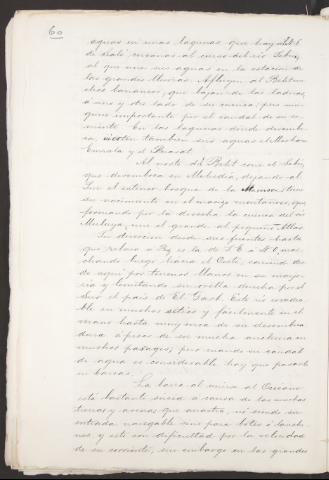 60
aguas en unas lagunas que hay al S. E.
de Salé, cercanas al curso del rio Sebu,
al que une sus aguas en la estacion de
las grandes lluvias. Afluyen al Beht un-
chos barrancos, que bajan de las laderas
a uno y otro lado de su cuenca; pero nin-
guno importante por el caudal de su co-
rriente. En las lagunas donde desembo-
ca vierten tambien sus aguas el
y el
Al norte del Beht corre el Sebu,
que desemboca en Mehedia, dejando al
Sur el extenso bosque de la Mamora; tiene
su nacimiento en el macizo montañoso, que
formando por la derecha la cuenca del rio
Muluya, une el grande al pequeño Atlas.
Su direccion desde sus fuentes hasta
que rebasa a Fez es la de S. E. a N. O, mar-
chando luego hacia el Oeste, corriendo des-
de aquí por terrenos llanos en su mayo-
ría y limitando su orilla derecha por el
Sur el país de El Garb. Este río es vadea-
ble en muchos sitios y facilmente en el
verano hasta muy cerca de su desemboca-
dura á pesar de su mucha anchura en
muchos parages; pero cuando su caudal
de agua es considerable hay que pasarlo
en barcas.
La barra al unirse al Océano
está bastante sucia á causa de las muchas
tierras y arenas que arrastra, ni siendo su
entrada navegable sino para botes ó lancho-
nes, y esto con dificultad por la velocidad
de su corriente, sin embargo en las grandes